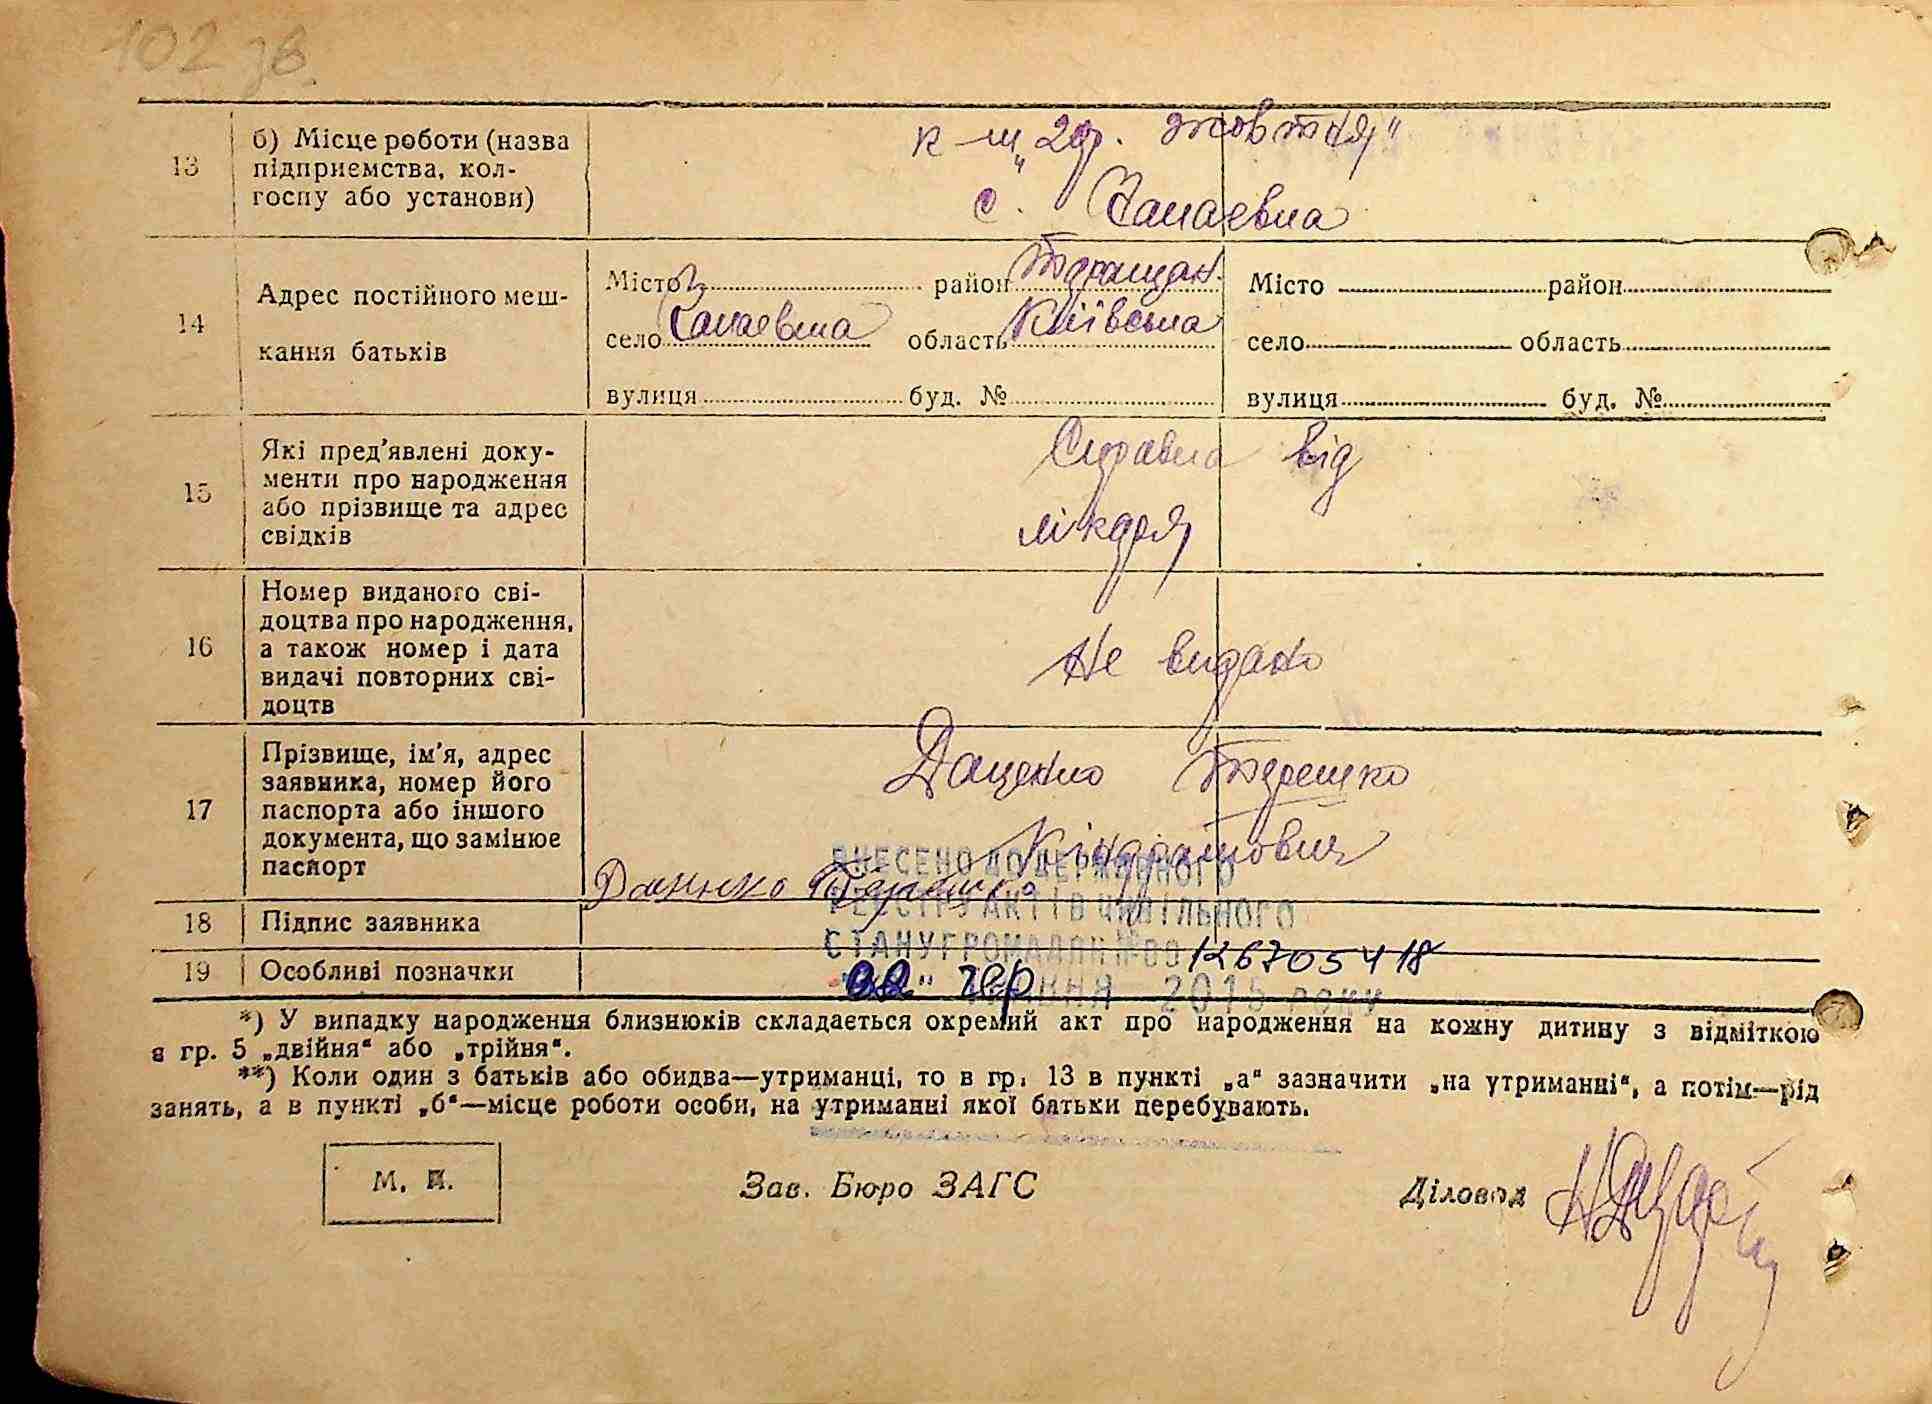 102 зв.
13 б) Місце роботи (назва
підприємства, кол-
госпу або установи)
к-п „20р. жовтня"
с. Чапаевка
14 Адрес постійного меш-
кання батьків
Місто район Таращан.
село Чапаевка область Київська
вулиця буд. №
Місто район
село область
вулиця буд. №
15 Які пред'явлені доку-
менти про народження
або прізвище та адрес
свідків
Справка від
лікаря
16 Номер виданого сві-
доцтва про народження,
а також номер і дата
видачі повторних сві-
доцтв
Не видано
17 Прізвище, ім'я, адрес
заявника, номер його
паспорта або іншого
документа, що замінює
паспорт
Даценко Терешко
Кіндратович
18 Підпис заявника
Даценко Терешко
19 Особливі позначки
ВНЕСЕНО ДО ДЕРЖАВНОГО
РЕЄСТРУ АКТІВ ЦИВІЛЬНОГО
СТАНУ ГРОМАДЯН №00 1267054 18
"02" червня 2015 року
*) У випадку народження близнюків складається окремий акт про народження на кожну дитину з відміткою
в гр. 5 „двійня" або „трійня".
**) Коли один з батьків або обидва—утриманці, то в гр. 13 в пункті „а" зазначити „на утриманні", а потім—рід
занять, а в пункті „б"—місце роботи особи, на утриманні якої батьки перебувають.
М. П.
Зав. Бюро ЗАГС
Діловод